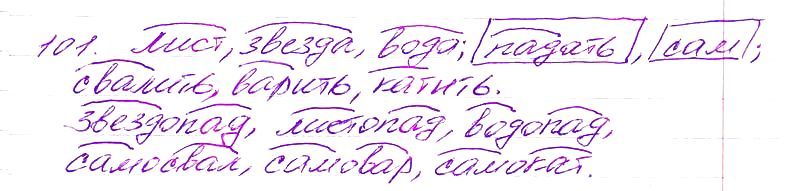 101. Лист, звезда, вода; падать, сам;
свалить, варить, катить.
Звездопад, листопад, водопад,
самосвал, самовар, самокат.